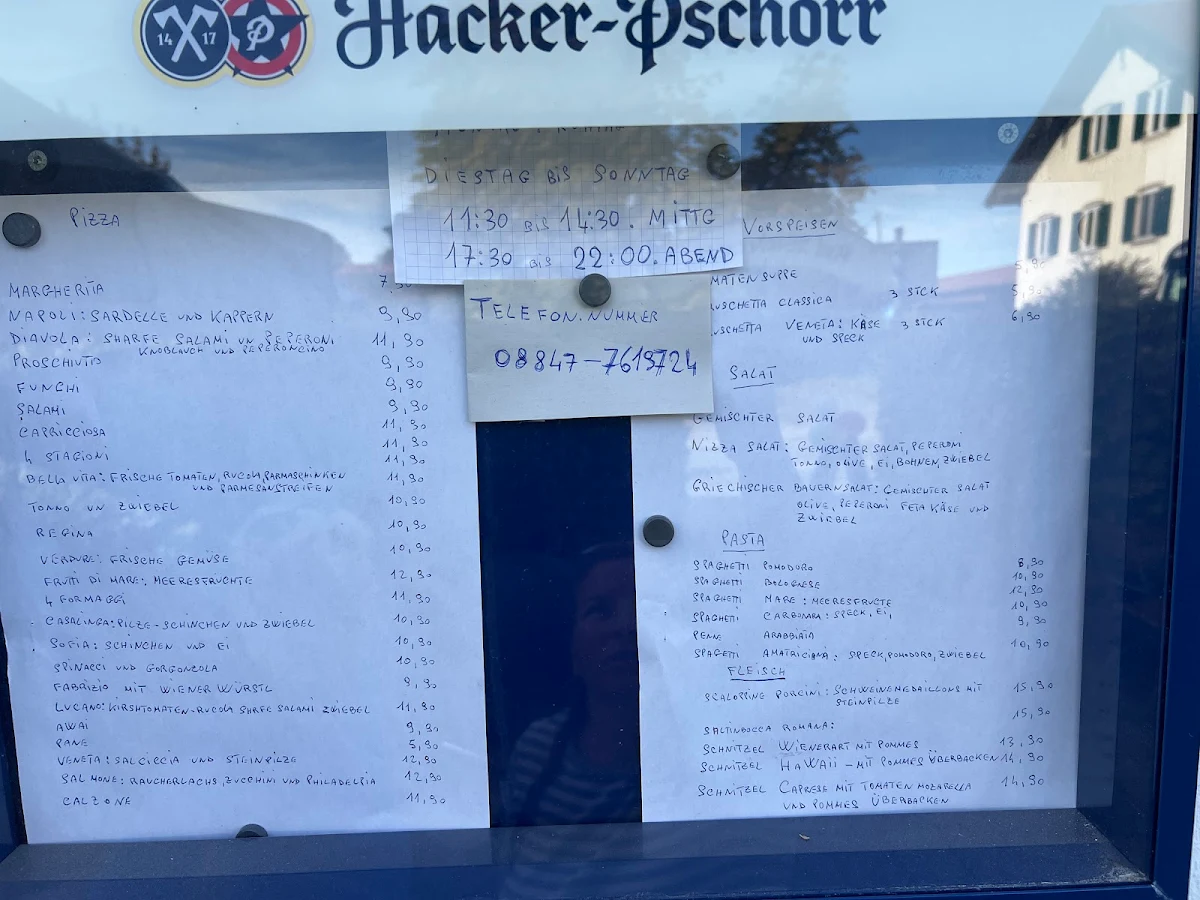 14 17
P
Hacker-Pschorr
DIESTAG BIS SONNTAG
11:30 BIS 14:30. MITTG
17:30 BIS 22:00. ABEND
TELEFON.NUMMER
08847-7619724
PIZZA
MARGHERITA
NAPOLI: SARDELLE UND KAPPERN 9,90
DIAVOLA: SHARFE SALAMI UN PEPERONI 11,90
KNOBLAUCH UND PEPERONCINO
PROSCHIUTO 9,90
FUNGHI 9,90
SALAMI 9,90
CAPRICCIOSA 11,90
4 STAGIONI 11,90
11,90
BELLA VITA: FRISCHE TOMATEN, RUCOLA, PARMASCHINKEN 11,90
UND PARMESANSTREIFEN
TONNO UN ZWIEBEL 10,90
REGINA 10,90
VERDURE: FRISCHE GEMÜSE 10,90
FRUTTI DI MARE: MEERESFRUCHTE 12,90
4 FORMAGGI 11,90
CASALINGA: PILZE-SCHINCHEN UND ZWIEBEL 10,90
SOFIA: SCHINCHEN UND EI 10,90
SPINACCI UND GORGONZOLA 10,90
FABRIZIO MIT WIENER WÜRSTL 9,90
LUCANO: KIRSHTOMATEN-RUCOLA SHRFE SALAMI ZWIEBEL 11,90
AWAI 9,90
PANE 5,90
VENETA: SALCICCIA UND STEINPILZE 12,90
SALMONE: RAUCHERLACHS, ZUCCHINI UND PHILADELPIA 12,90
CALZONE 11,90
VORSPEISEN
MATENSUPPE 5,90
USCHETTA CLASSICA 3 STCK 5,90
USCHETTA VENETA: KÄSE 3 STCK 6,90
UND SPECK
SALAT
GEMISCHTER SALAT
NIZZA SALAT: GEMISCHTER SALAT, PEPERONI
TONNO, OLIVE, EI, BOHNEN, ZWIEBEL
GRIECHISCHER BAUERNSALAT: GEMISCHTER SALAT
OLIVE, PEPERONI FETA KÄSE UND
ZWIEBEL
PASTA
SPAGHETTI POMODORO 8,90
SPAGHETTI BOLOGNESE 10,90
SPAGHETTI MARE: MEERESFRUCTE 12,90
SPAGHETI CARBONARA: SPECK, EI, 10,90
PENNE ARABBIATA 9,90
SPAGETTI AMATRICIANA: SPECK, POMODORO, ZWIEBEL 10,90
FLEISCH
SCALOPPINE PORCINI: SCHWEINEMEDAILLONS MIT 15,90
STEINPILZE
SALTINBOCCA ROMANA: 15,90
SCHNITZEL WIENERART MIT POMMES 13,90
SCHNITZEL HAWAII - MIT POMMES ÜBERBACKEN 14,90
SCHNITZEL CAPRESE MIT TOMATEN MOZARELLA 14,90
UND POMMES ÜBERBACKEN